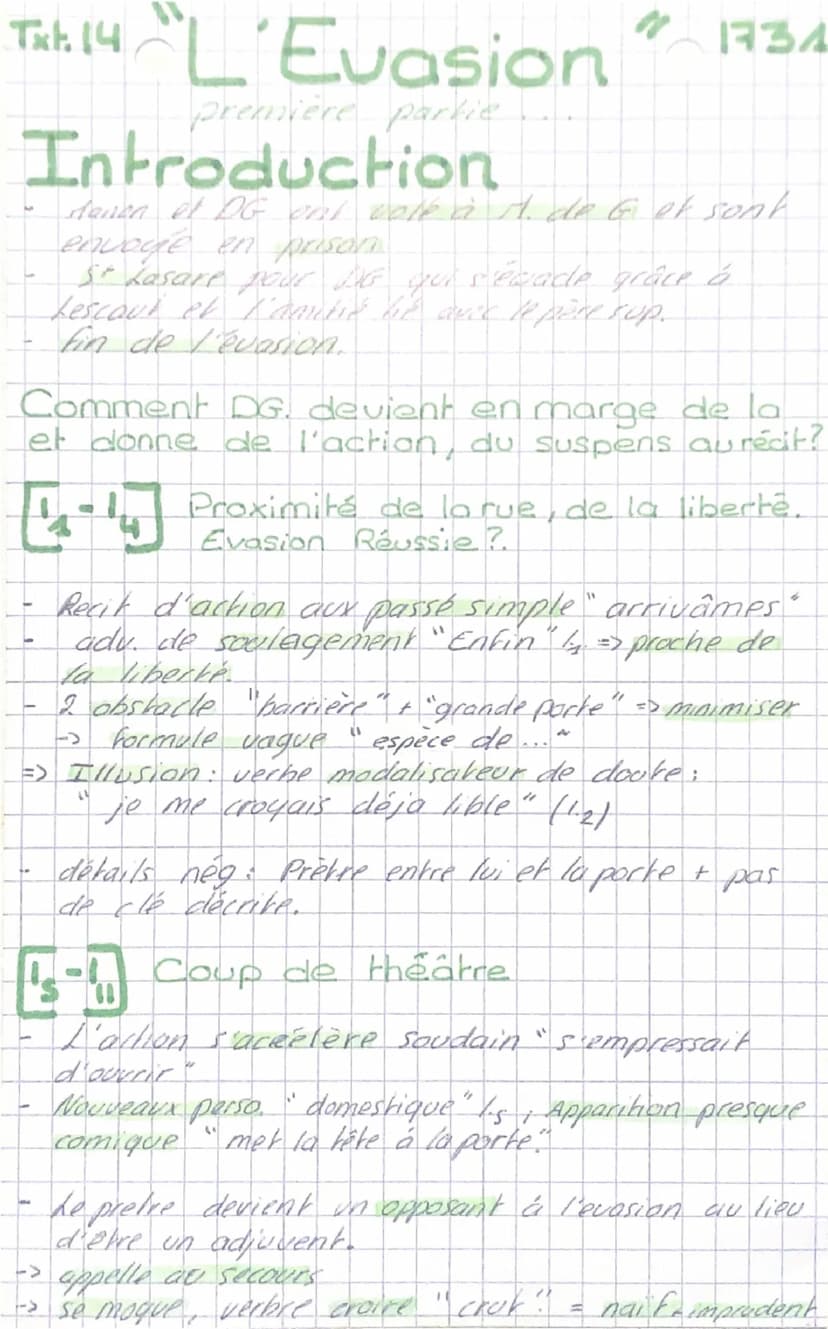 Txt.14 "L'Evasion" 1731
première partie...
Introduction
- Manon et DG ont volé à M. de G et sont
envoyé en prison
- St Lasare pour DG qui s'évade grâce à
Lescaut et l'amitié lié avec le père sup.
- fin de l'évasion.
Comment DG. devient en marge de la
et donne de l'action, du suspens au récit?
[l1-l4] Proximité de la rue, de la liberté.
Evasion Réussie?.
- Recit d'action aux passé simple "arrivâmes"
- adv. de soulagement "Enfin" l1. => proche de
la liberté.
- 2 obstacle "barrière" + "grande porte" => minimiser
-> formule vague "espèce de ..."
=> Illusion : verbe modalisateur de doute :
"je me croyais déja lible" (l.2)
- détails nég : Prêtre entre lui et la porte + pas
de clé décrite.
[l5-l11] Coup de théâtre
- L'action s'accélère soudain "s'empressait
d'ouvrir"
- Nouveaux perso. "domestique" l.5 ; Apparition presque
comique "met la tête à la porte".
- Le pretre devient un opposant à l'evasion au lieu
d'être un adjuvent.
-> appelle au secours
-> se moque, verbre croire "crut". = naïf - imprudent